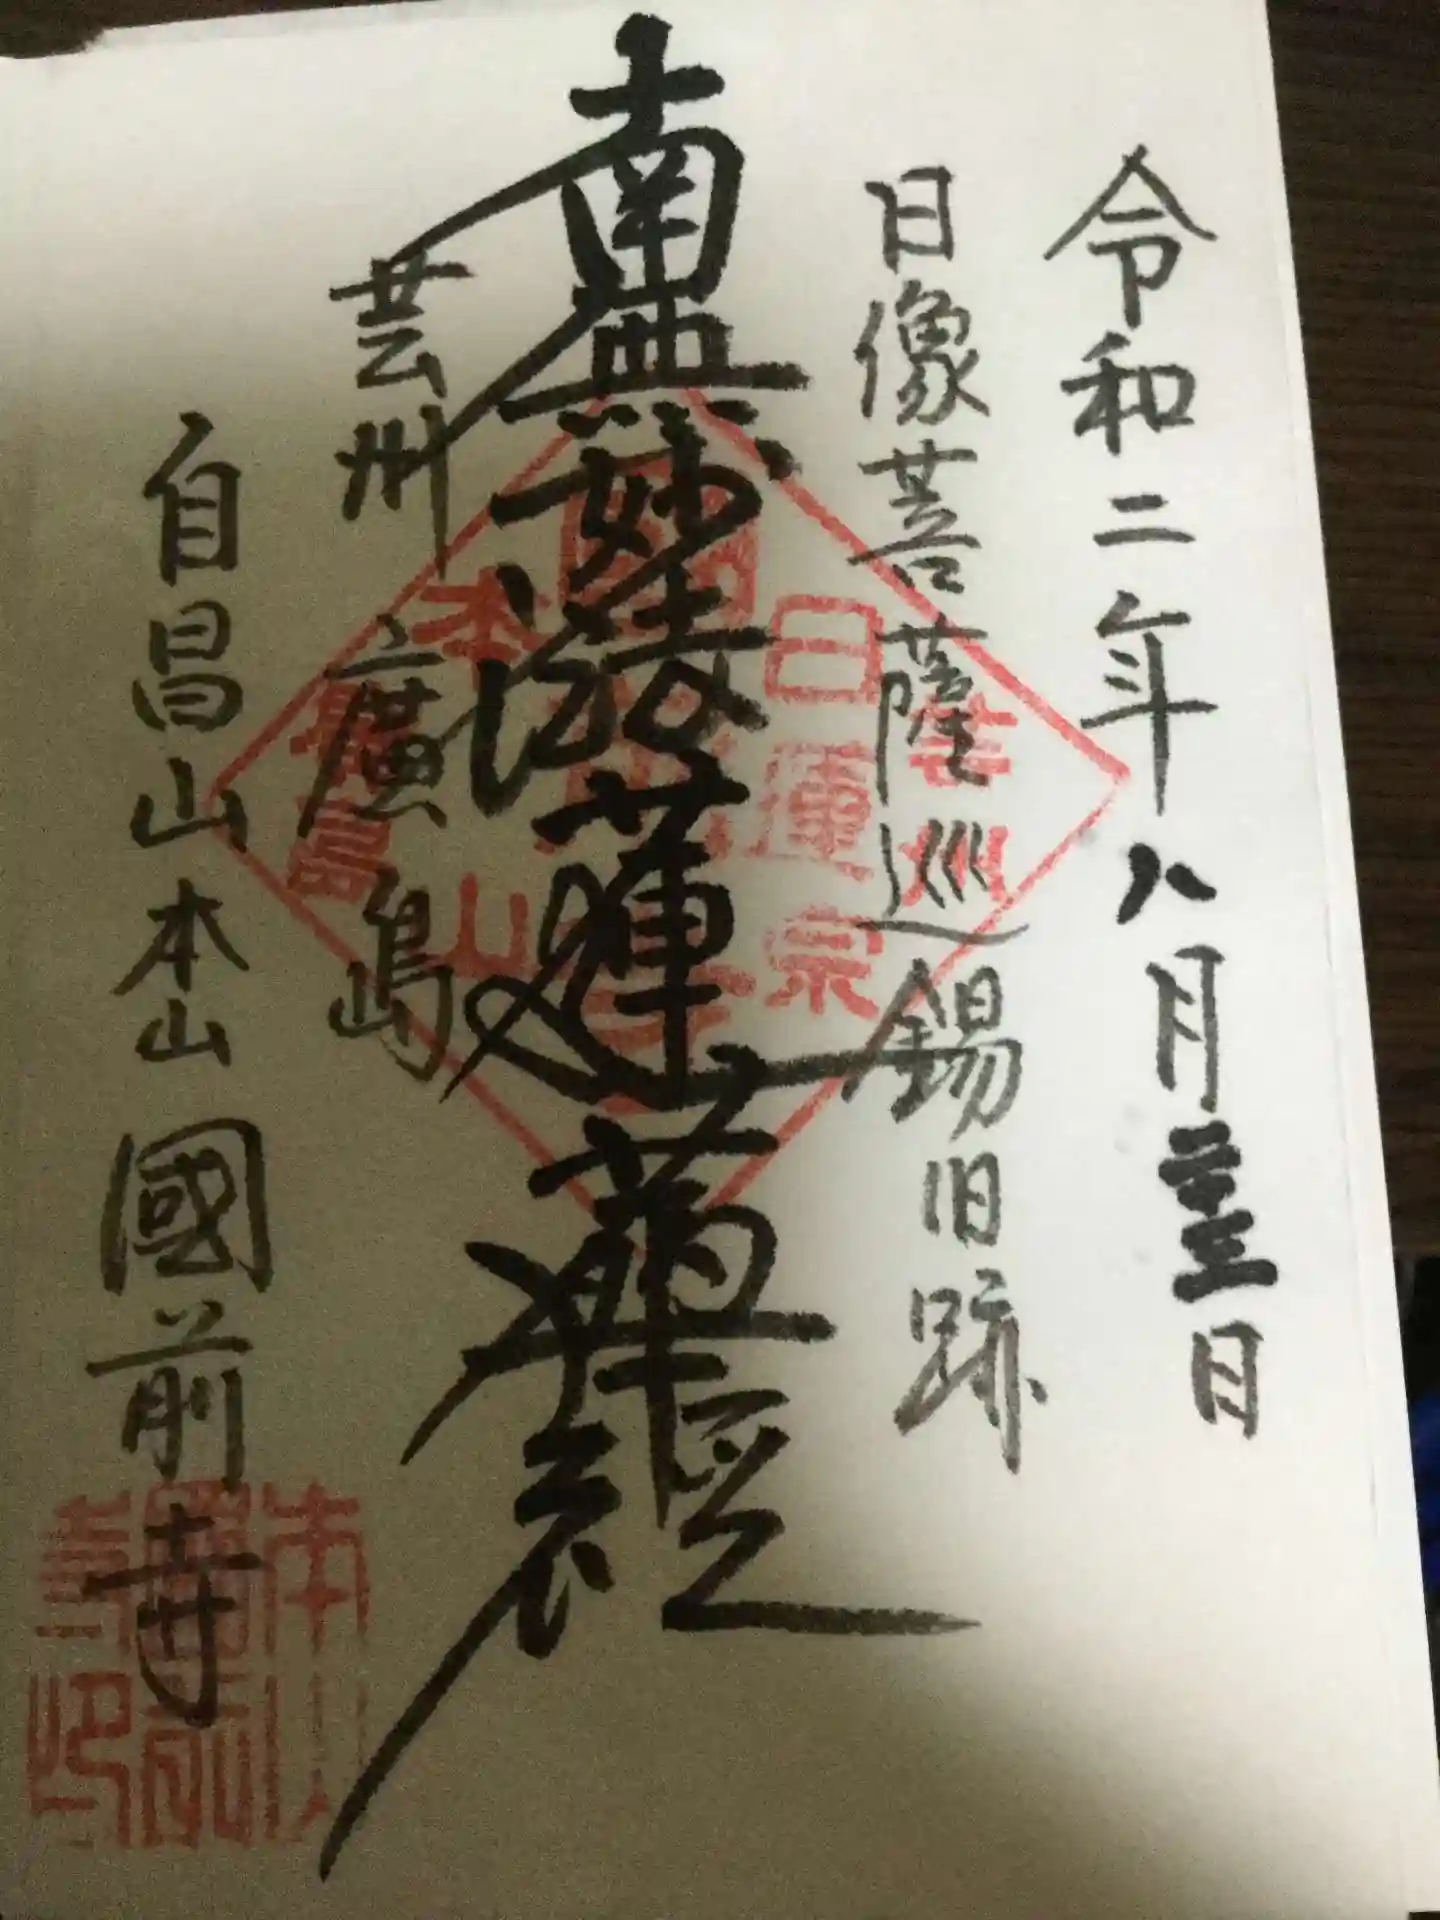 令和二年八月 日
日像菩薩巡錫旧跡
南無妙法蓮華経
芸州 廣島
自昌山本山 國前寺
芸州
日蓮宗
本山
廣島
本山國前寺印